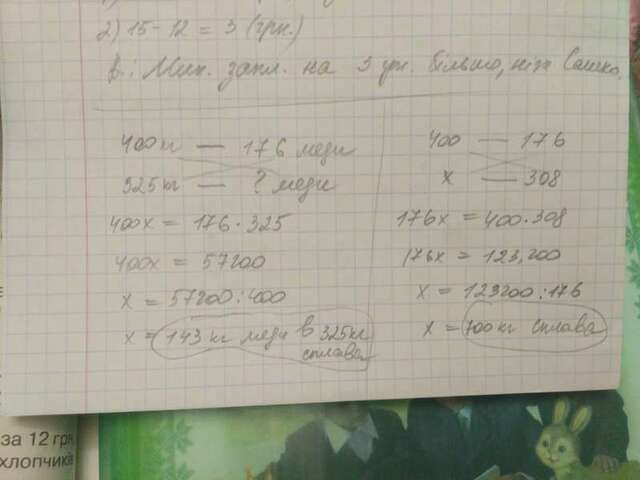 2) 15 - 12 = 3 (грн.)
В.: Мих. запл. на 3 грн. більше, ніж Сашко.
400 кг — 176 меди
325 кг — ? меди
400х = 176 · 325
400х = 57200
х = 57200 : 400
х = 143 кг меди в 325 кг
сплава
400 — 176
х — 308
176х = 400 · 308
176х = 123,200
х = 123200 : 176
х = 700 кг сплава
за 12 грн
хлопчиків